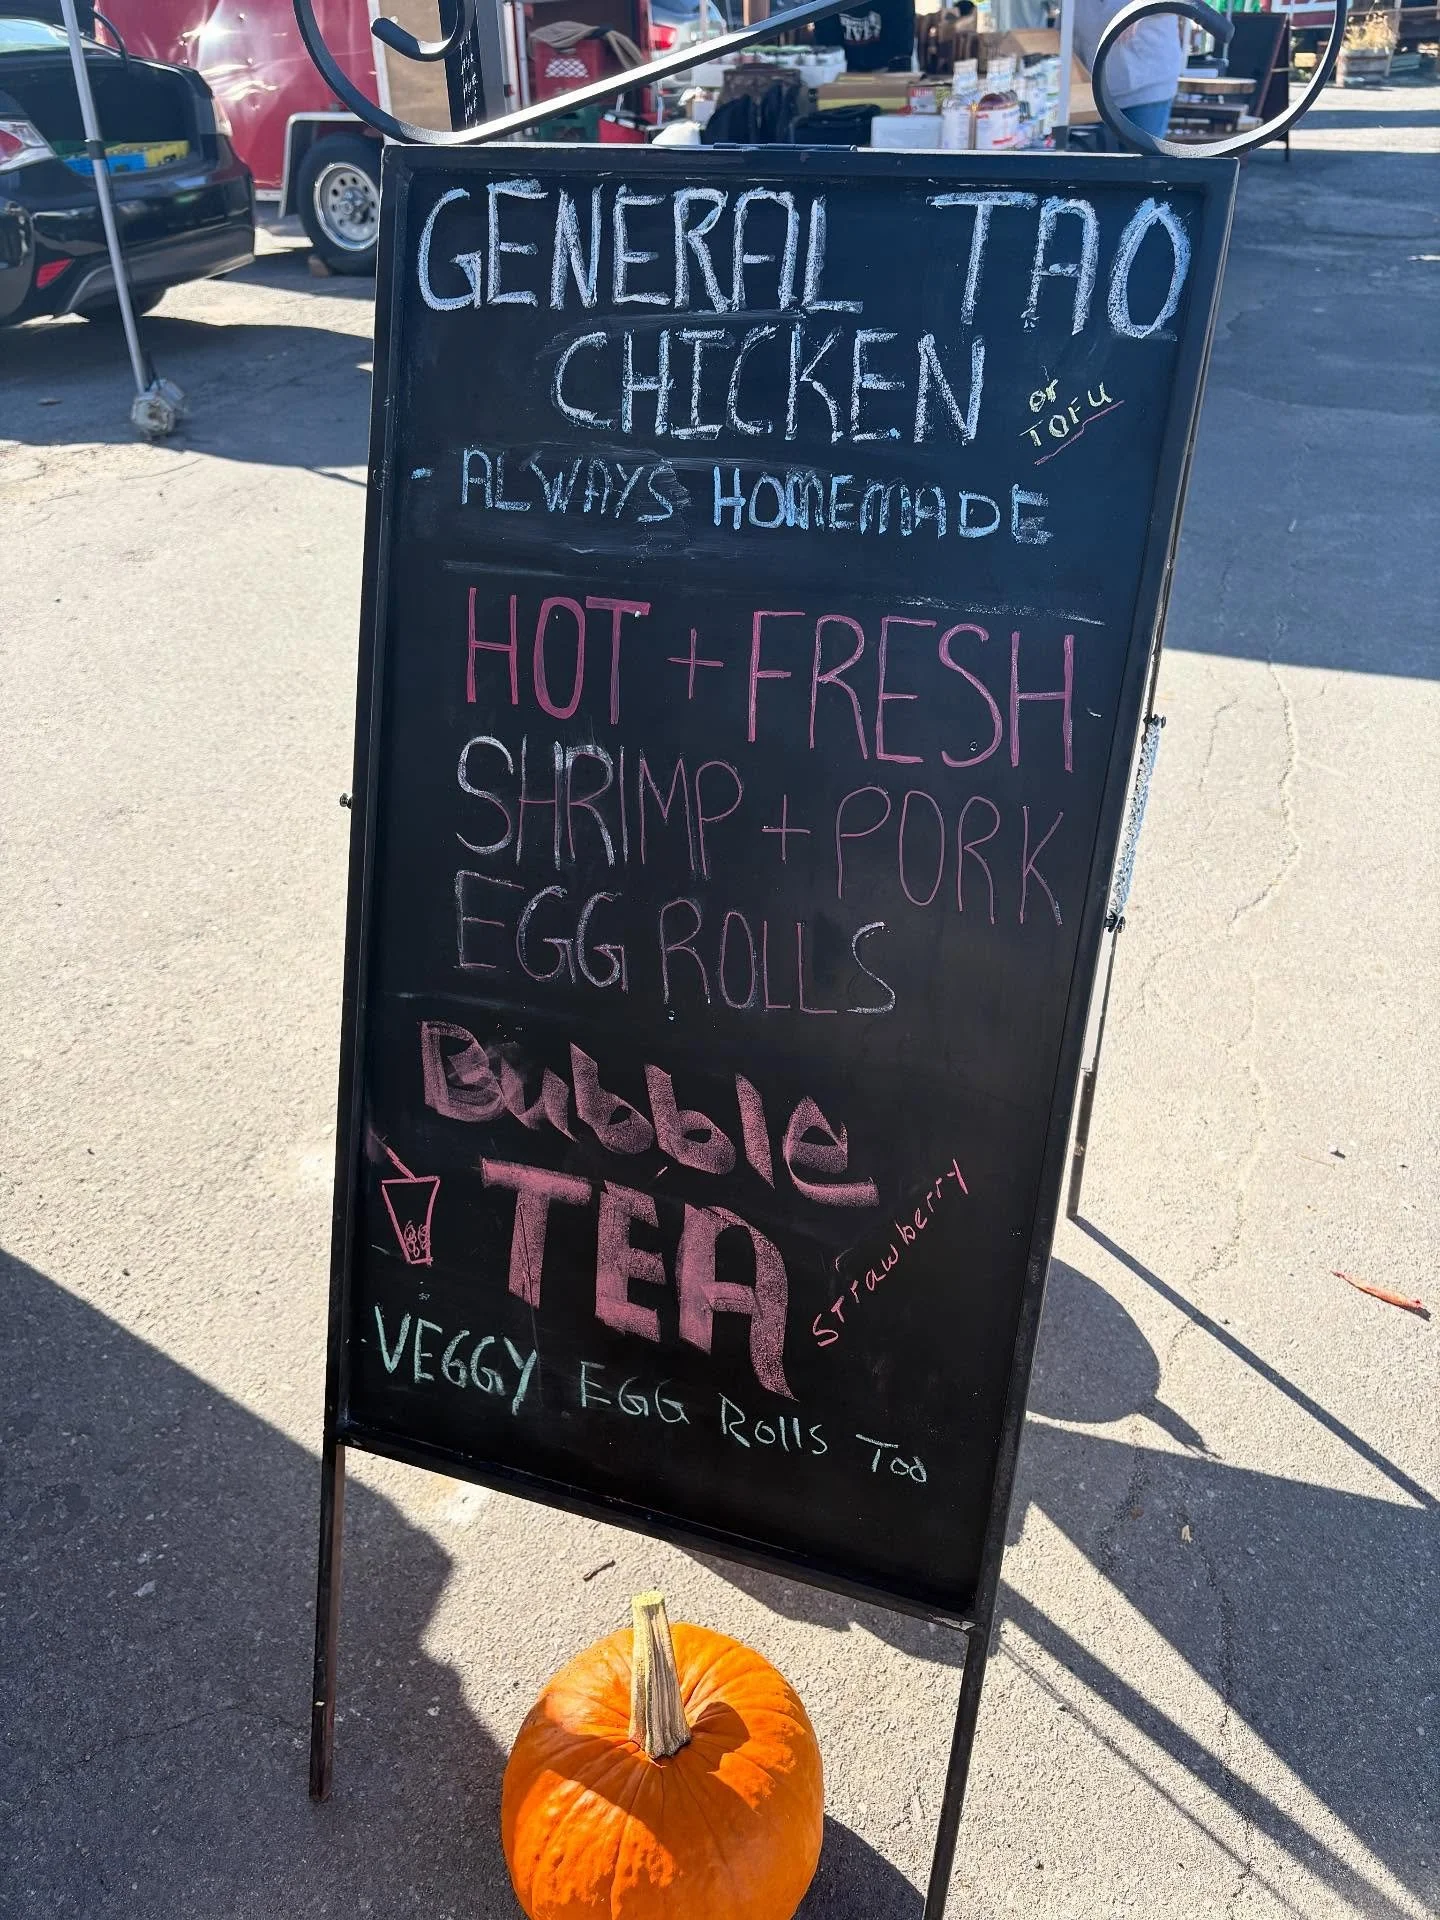 GENERAL TAO
CHICKEN
or
TOFU
- ALWAYS HOMEMADE
HOT + FRESH
SHRIMP + PORK
EGG ROLLS
Bubble
TEA
Strawberry
- VEGGY EGG Rolls Too